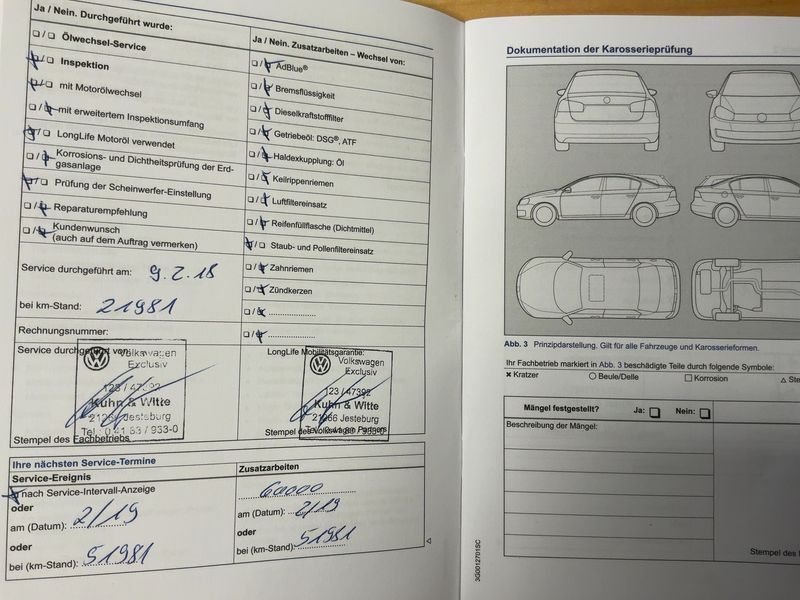 Ja / Nein. Durchgeführt wurde:
Ölwechsel-Service
Inspektion
mit Motorölwechsel
mit erweitertem Inspektionsumfang
LongLife Motoröl verwendet
Korrosions- und Dichtheitsprüfung der Erd-
gasanlage
Prüfung der Scheinwerfer-Einstellung
Reparaturempfehlung
Kundenwunsch
(auch auf dem Auftrag vermerken)
Service durchgeführt am: 9.2.18
bei km-Stand: 21981
Rechnungsnummer:
Service durchgeführt von:
Volkswagen
Exclusiv
123 / 47392
Kuhn & Witte
Jesteburg
Tel.: 0 41 83 / 933-0
Stempel des Fachbetriebs
Ja / Nein. Zusatzarbeiten – Wechsel von:
AdBlue®
Bremsflüssigkeit
Dieselkraftstofffilter
Getriebeöl: DSG®, ATF
Haldexkupplung: Öl
Keilrippenriemen
Luftfiltereinsatz
Reifenfüllflasche (Dichtmittel)
Staub- und Pollenfiltereinsatz
Zahnriemen
Zündkerzen
LongLife Mobilitätsgarantie:
Volkswagen
Exclusiv
123 / 47392
Kuhn & Witte
21266 Jesteburg
Stempel des Volkswagen Partners
Ihre nächsten Service-Termine
Service-Ereignis
nach Service-Intervall-Anzeige
oder
am (Datum): 2/19
oder
bei (km-Stand): 51981
Zusatzarbeiten
60000
am (Datum): 2/19
oder
bei (km-Stand): 51981
Dokumentation der Karosserieprüfung
Abb. 3 Prinzipdarstellung. Gilt für alle Fahrzeuge und Karosserieformen.
Ihr Fachbetrieb markiert in Abb. 3 beschädigte Teile durch folgende Symbole:
Kratzer
Beule/Delle
Korrosion
Mängel festgestellt? Ja: Nein:
Beschreibung der Mängel:
Stempel des
3G0012701SC